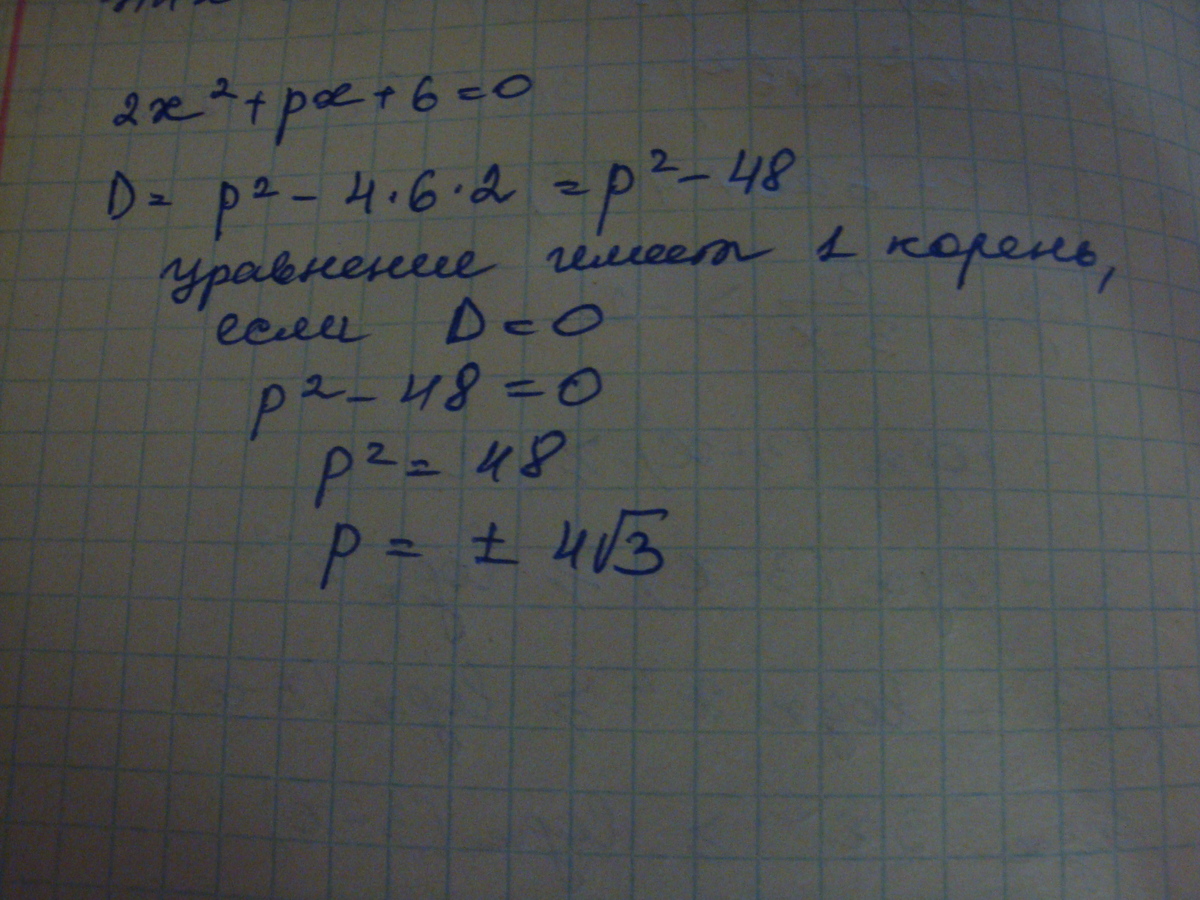 2x²+px+6=0
D= p²-4·6·2 =p²-48
уравнение имеет 1 корень,
если D=0
p²-48=0
p²=48
p=±4√3